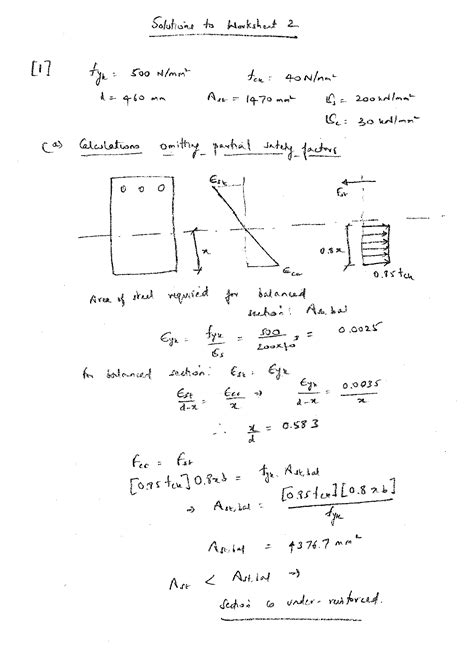 Solutions to Worksheet 2
[1] fyk = 500 N/mm² fck = 40 N/mm²
d = 460 mm Ast = 1470 mm² Es = 200 kN/mm²
Ec = 30 kN/mm²
(a) Calculations omitting partial safety factors
εst Fst
x 0.8x
εcc 0.85 fck
Area of steel required for balanced
section: Ast,bal
εyk = fyk / Es = 500 / 200x10³ = 0.0025
for balanced section: εst = εyk
εst / d-x = εcc / x ⇒ εyk / d-x = 0.0035 / x
∴ x / d = 0.583
Fcc = Fst
[0.85 fck] 0.8xb = fyk. Ast,bal
⇒ Ast,bal = [0.85 fck][0.8xb] / fyk
Ast,bal = 4376.7 mm²
Ast < Ast,bal ⇒
section is under-reinforced.